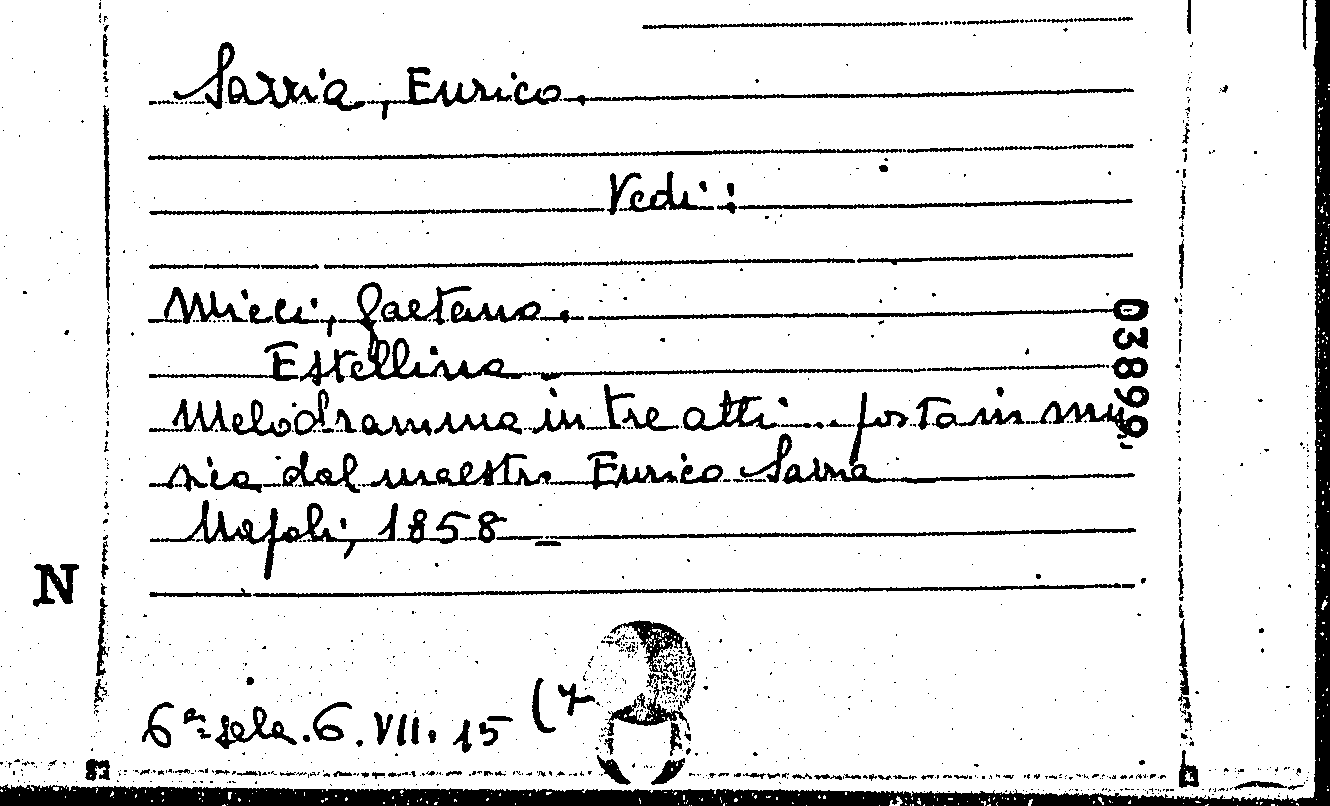 Sarria, Enrico.
Vedi:
Micci, Gaetano.
Estellina –
Melodramma in tre atti... posta in mu
sica dal maestro Enrico Sarria
Napoli, 1858 –
038999
N
6ª sala. 6. VII. 15 (7